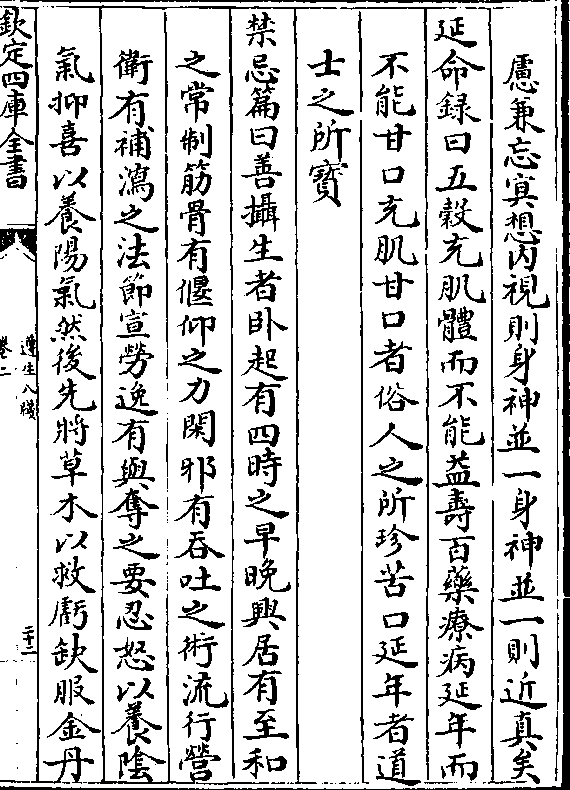 慮兼忘冥想内視則身神並一身神並一則近真矣
延命録曰五穀充肌體而不能益壽百藥療病延年而
不能甘口充肌甘口者俗人之所珍苦口延年者道
士之所寳
禁忌篇曰善攝生者卧起有四時之早晚興居有至和
之常制筋骨有偃仰之力閑邪有吞吐之術流行營
衛有補瀉之法節宣勞逸有與奪之要忍怒以養陰
氣抑喜以養陽氣然後先將草木以救虧缺服金丹
欽定四庫全書
遵生八牋
卷二
二十二